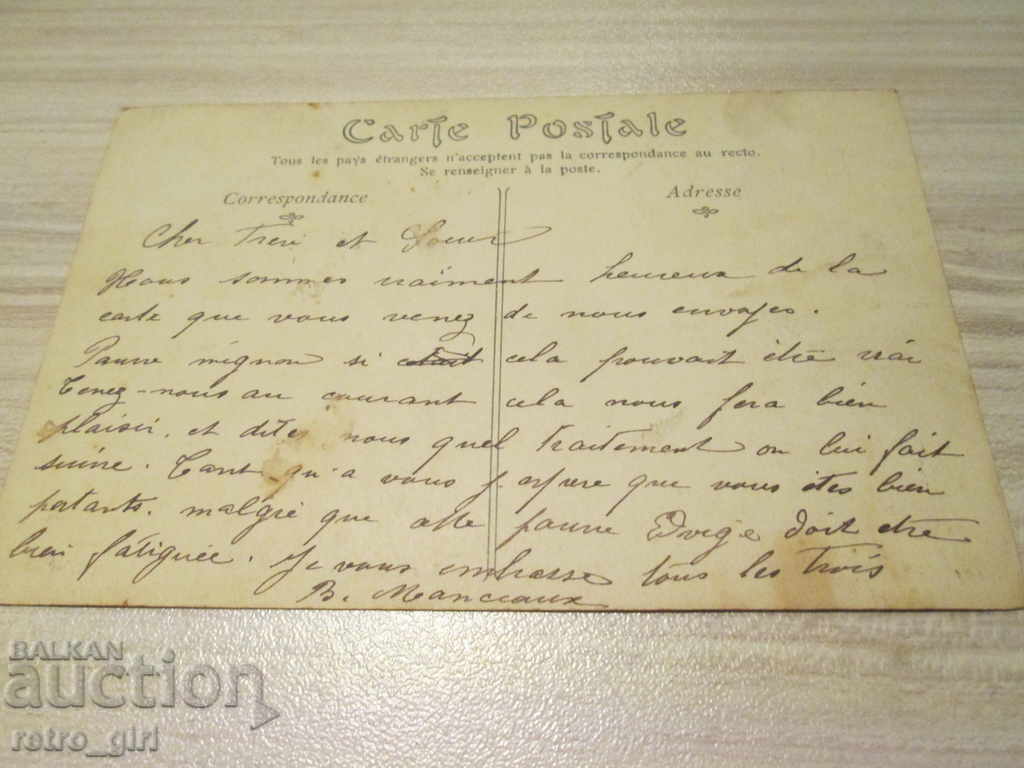 Carte Postale
Tous les pays étrangers n'acceptent pas la correspondance au recto.
Se renseigner à la poste.
Correspondance
Adresse
Cher Frere et Soeur
Nous sommes vraiment heureux de la
carte que vous venez de nous envoyer.
Pauvre mignon si cela pouvait être vrai
Tenez-nous au courant cela nous fera bien
plaisir, et dites nous quel traitement on lui fait
suivre. Tant qu'a vous j'espere que vous êtes bien
portants, malgré que cette pauvre Edvige doit etre
bien fatiguée. Je vous embrasse tous les trois
B. Manceaux
BALKAN
auction
retro_girl